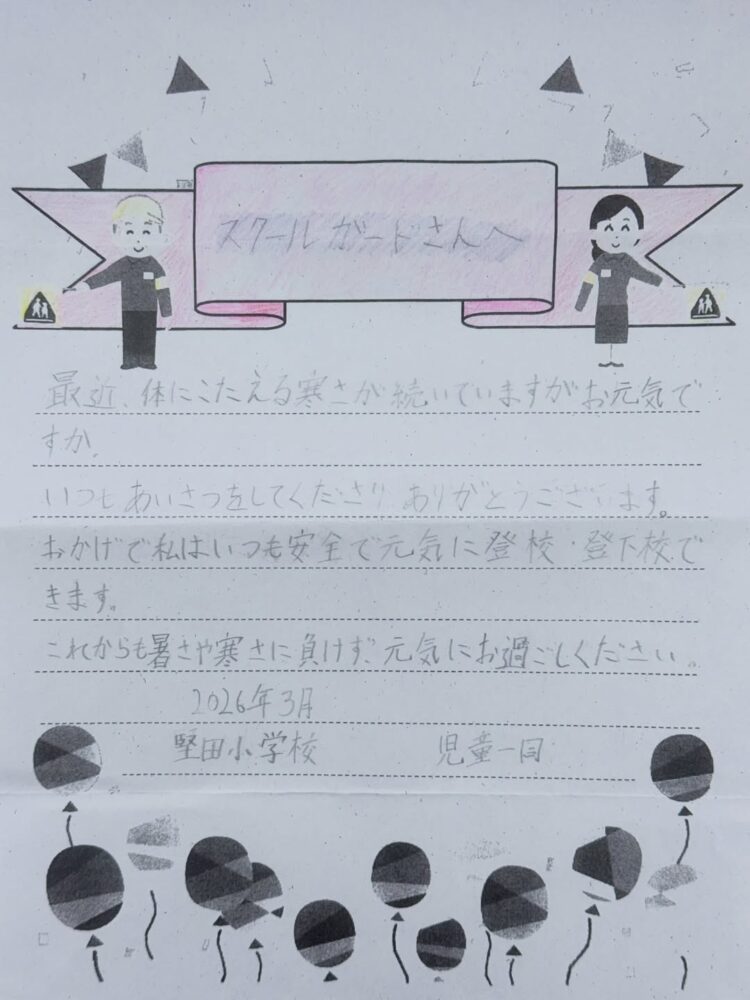 スクールガードさんへ
最近、体にこたえる寒さが続いていますがお元気で
すか。
いつもあいさつをしてくださり、ありがとうございます。
おかげで私はいつも安全で元気に登校・登下校で
きます。
これからも暑さや寒さに負けず、元気にお過ごしください。
2026年3月
堅田小学校 児童一同